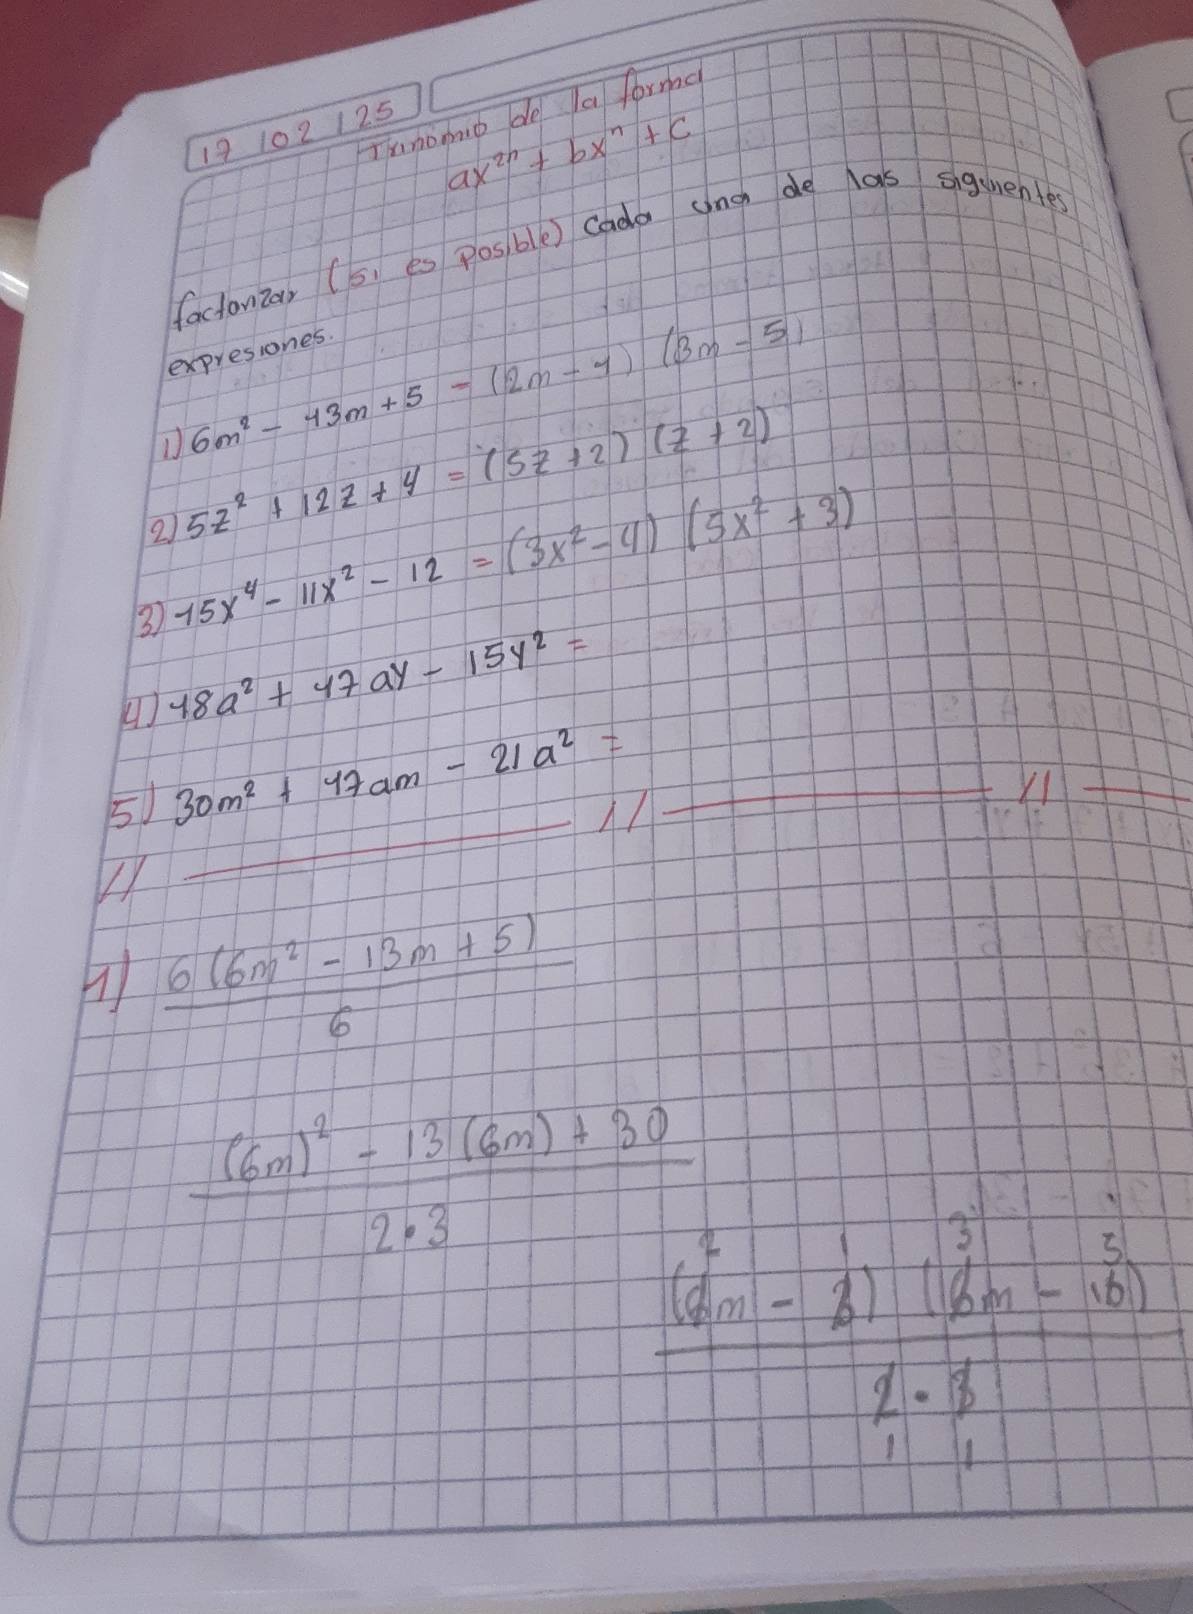 17 / 02 / 25
Trinomio de la forma
ax²ⁿ + bxⁿ + c
factorizar (si es posible) cada una de las siguientes
expresiones.
1) 6m² - 13m + 5 = (2m - 1) (3m - 5)
2) 5z² + 12z + 4 = (5z + 2) (z + 2)
3) 15x⁴ - 11x² - 12 = (3x² - 4) (5x² + 3)
4) 18a² + 17ay - 15y² =
5) 30m² + 17am - 21a² =
// // //
1) 6(6m² - 13m + 5)
6
(6m)² - 13(6m) + 30
2•3
2 1 3 5
(6m - 3) (6m - 10)
2 • 3
1 1